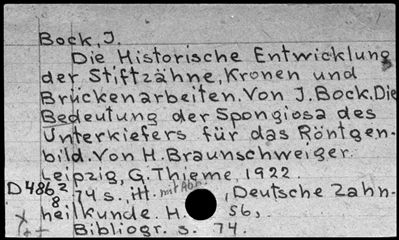 Bock, J.
Die Historische Entwicklung
der Stiftzähne, Kronen und
Brückenarbeiten. Von J. Bock. Die
Bedeutung der Spongiosa des
Unterkiefers für das Röntgen-
bild. Von H. Braunschweiger.
Leipzig, G. Thieme, 1922.
D4862
8
74 s., ill. mit Abb., Deutsche Zahn-
heilkunde. H. 56,.
Bibliogr. s. 74.